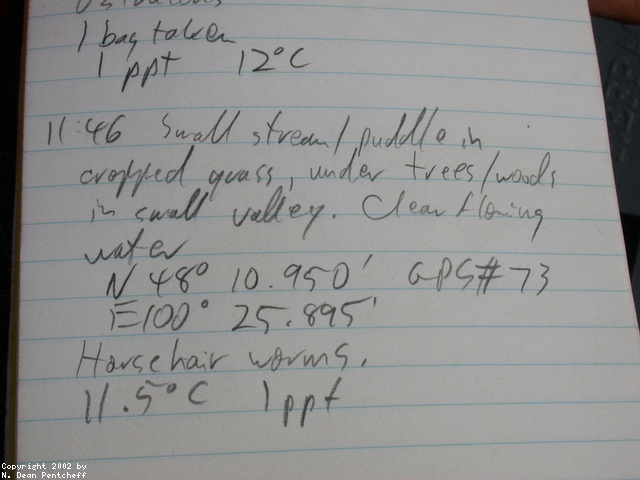 Ostracods
1 bag taken
1 ppt 12°C
11:46 Small stream/puddle in
cropped grass, under trees/woods
in small valley. Clear flowing
water
N 48° 10.950' GPS#73
E100° 25.895'
Horsehair worms.
11.5°C 1ppt
Copyright 2002 by
N. Dean Pentcheff